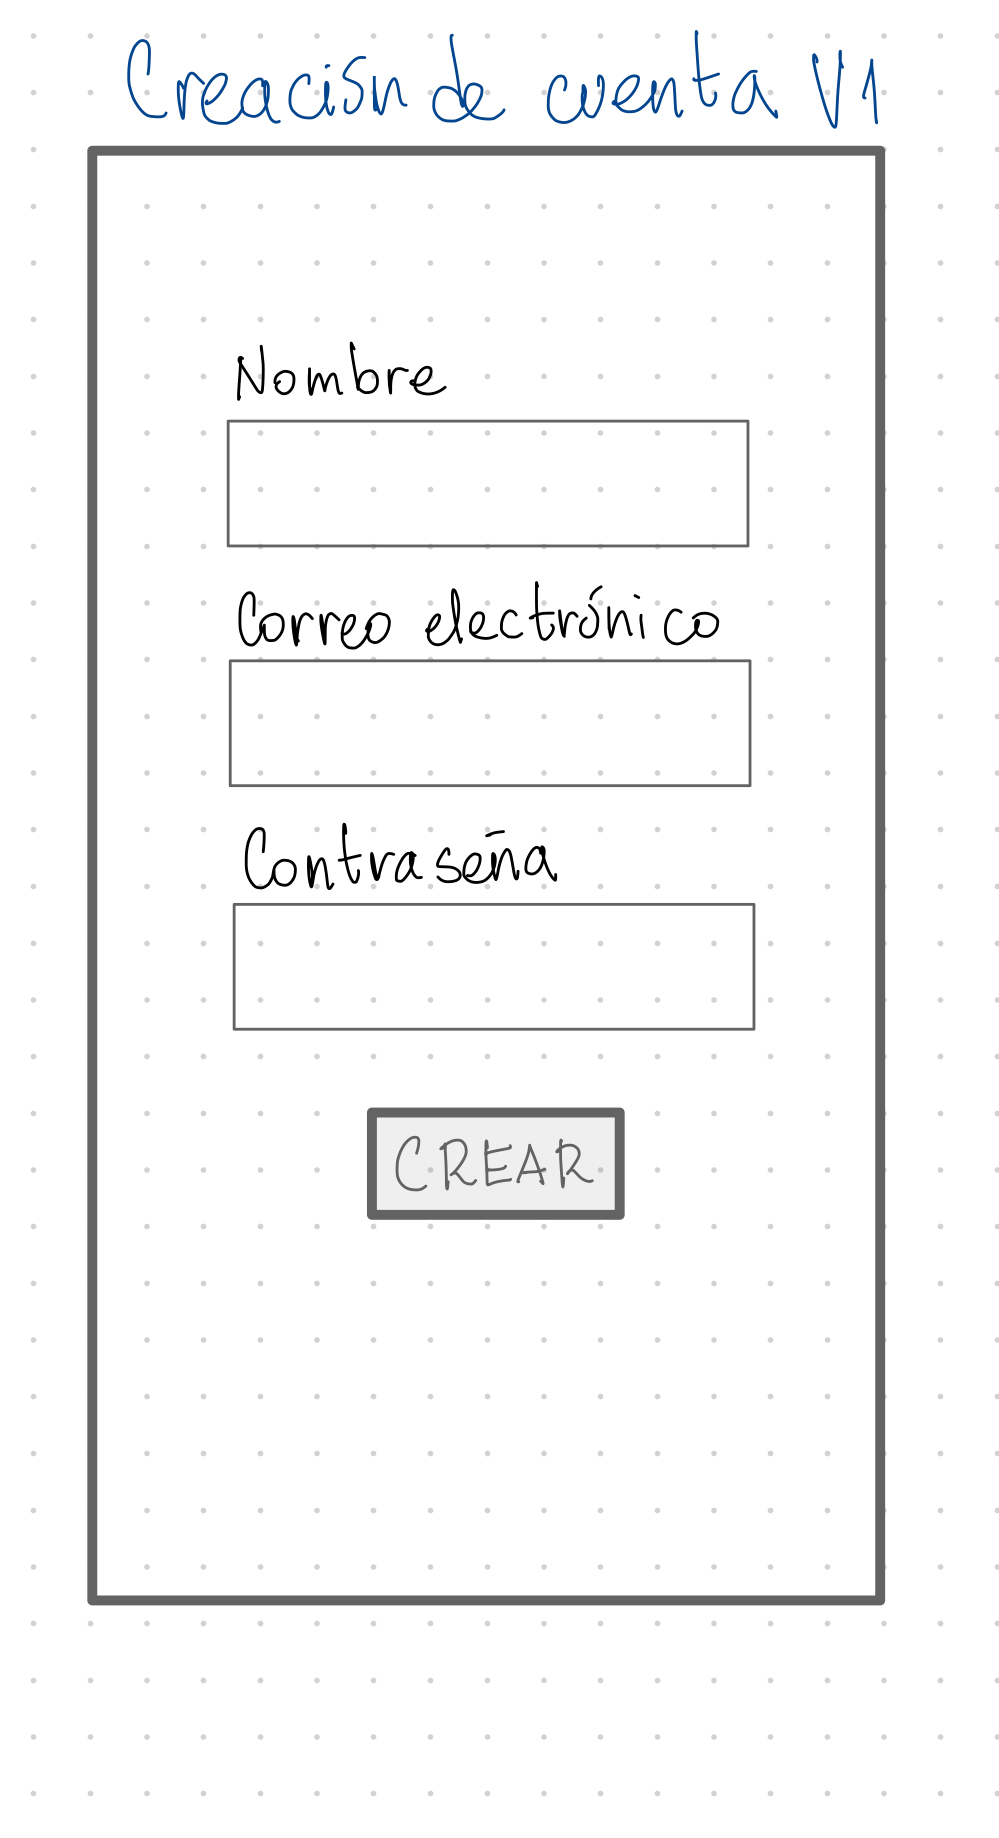 Creación de cuenta V1
Nombre
Correo electrónico
Contraseña
CREAR